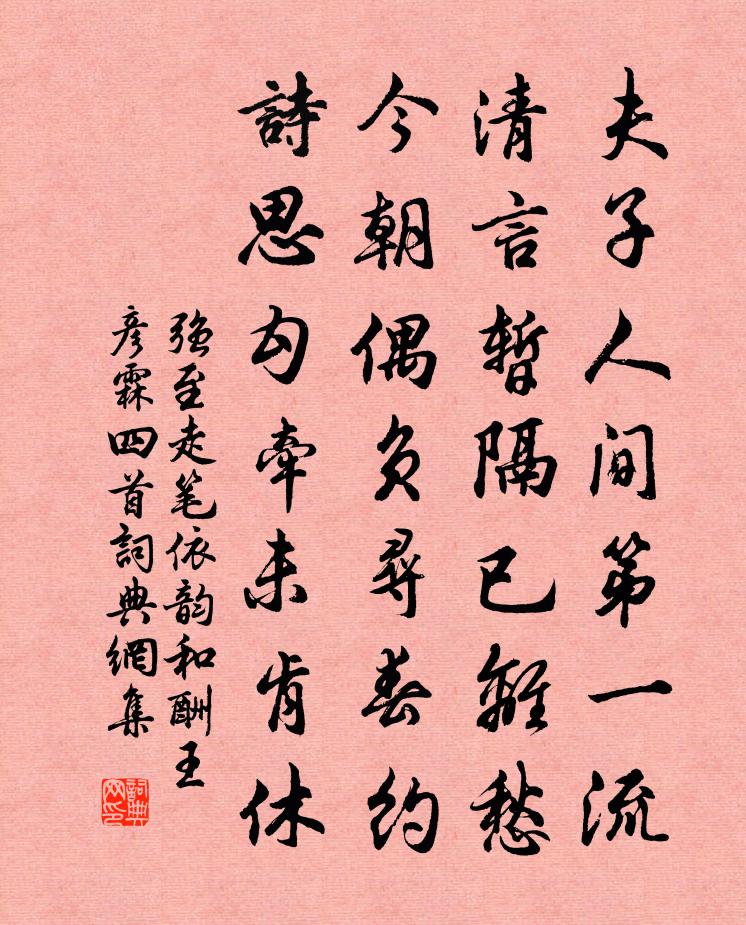 夫子人间第一流
清言暂隔已離愁
今朝偶负尋春约
詩思勾牵未肯休
强至走笔依韵和酬王
彦霖四首詞典網集
詞典网印